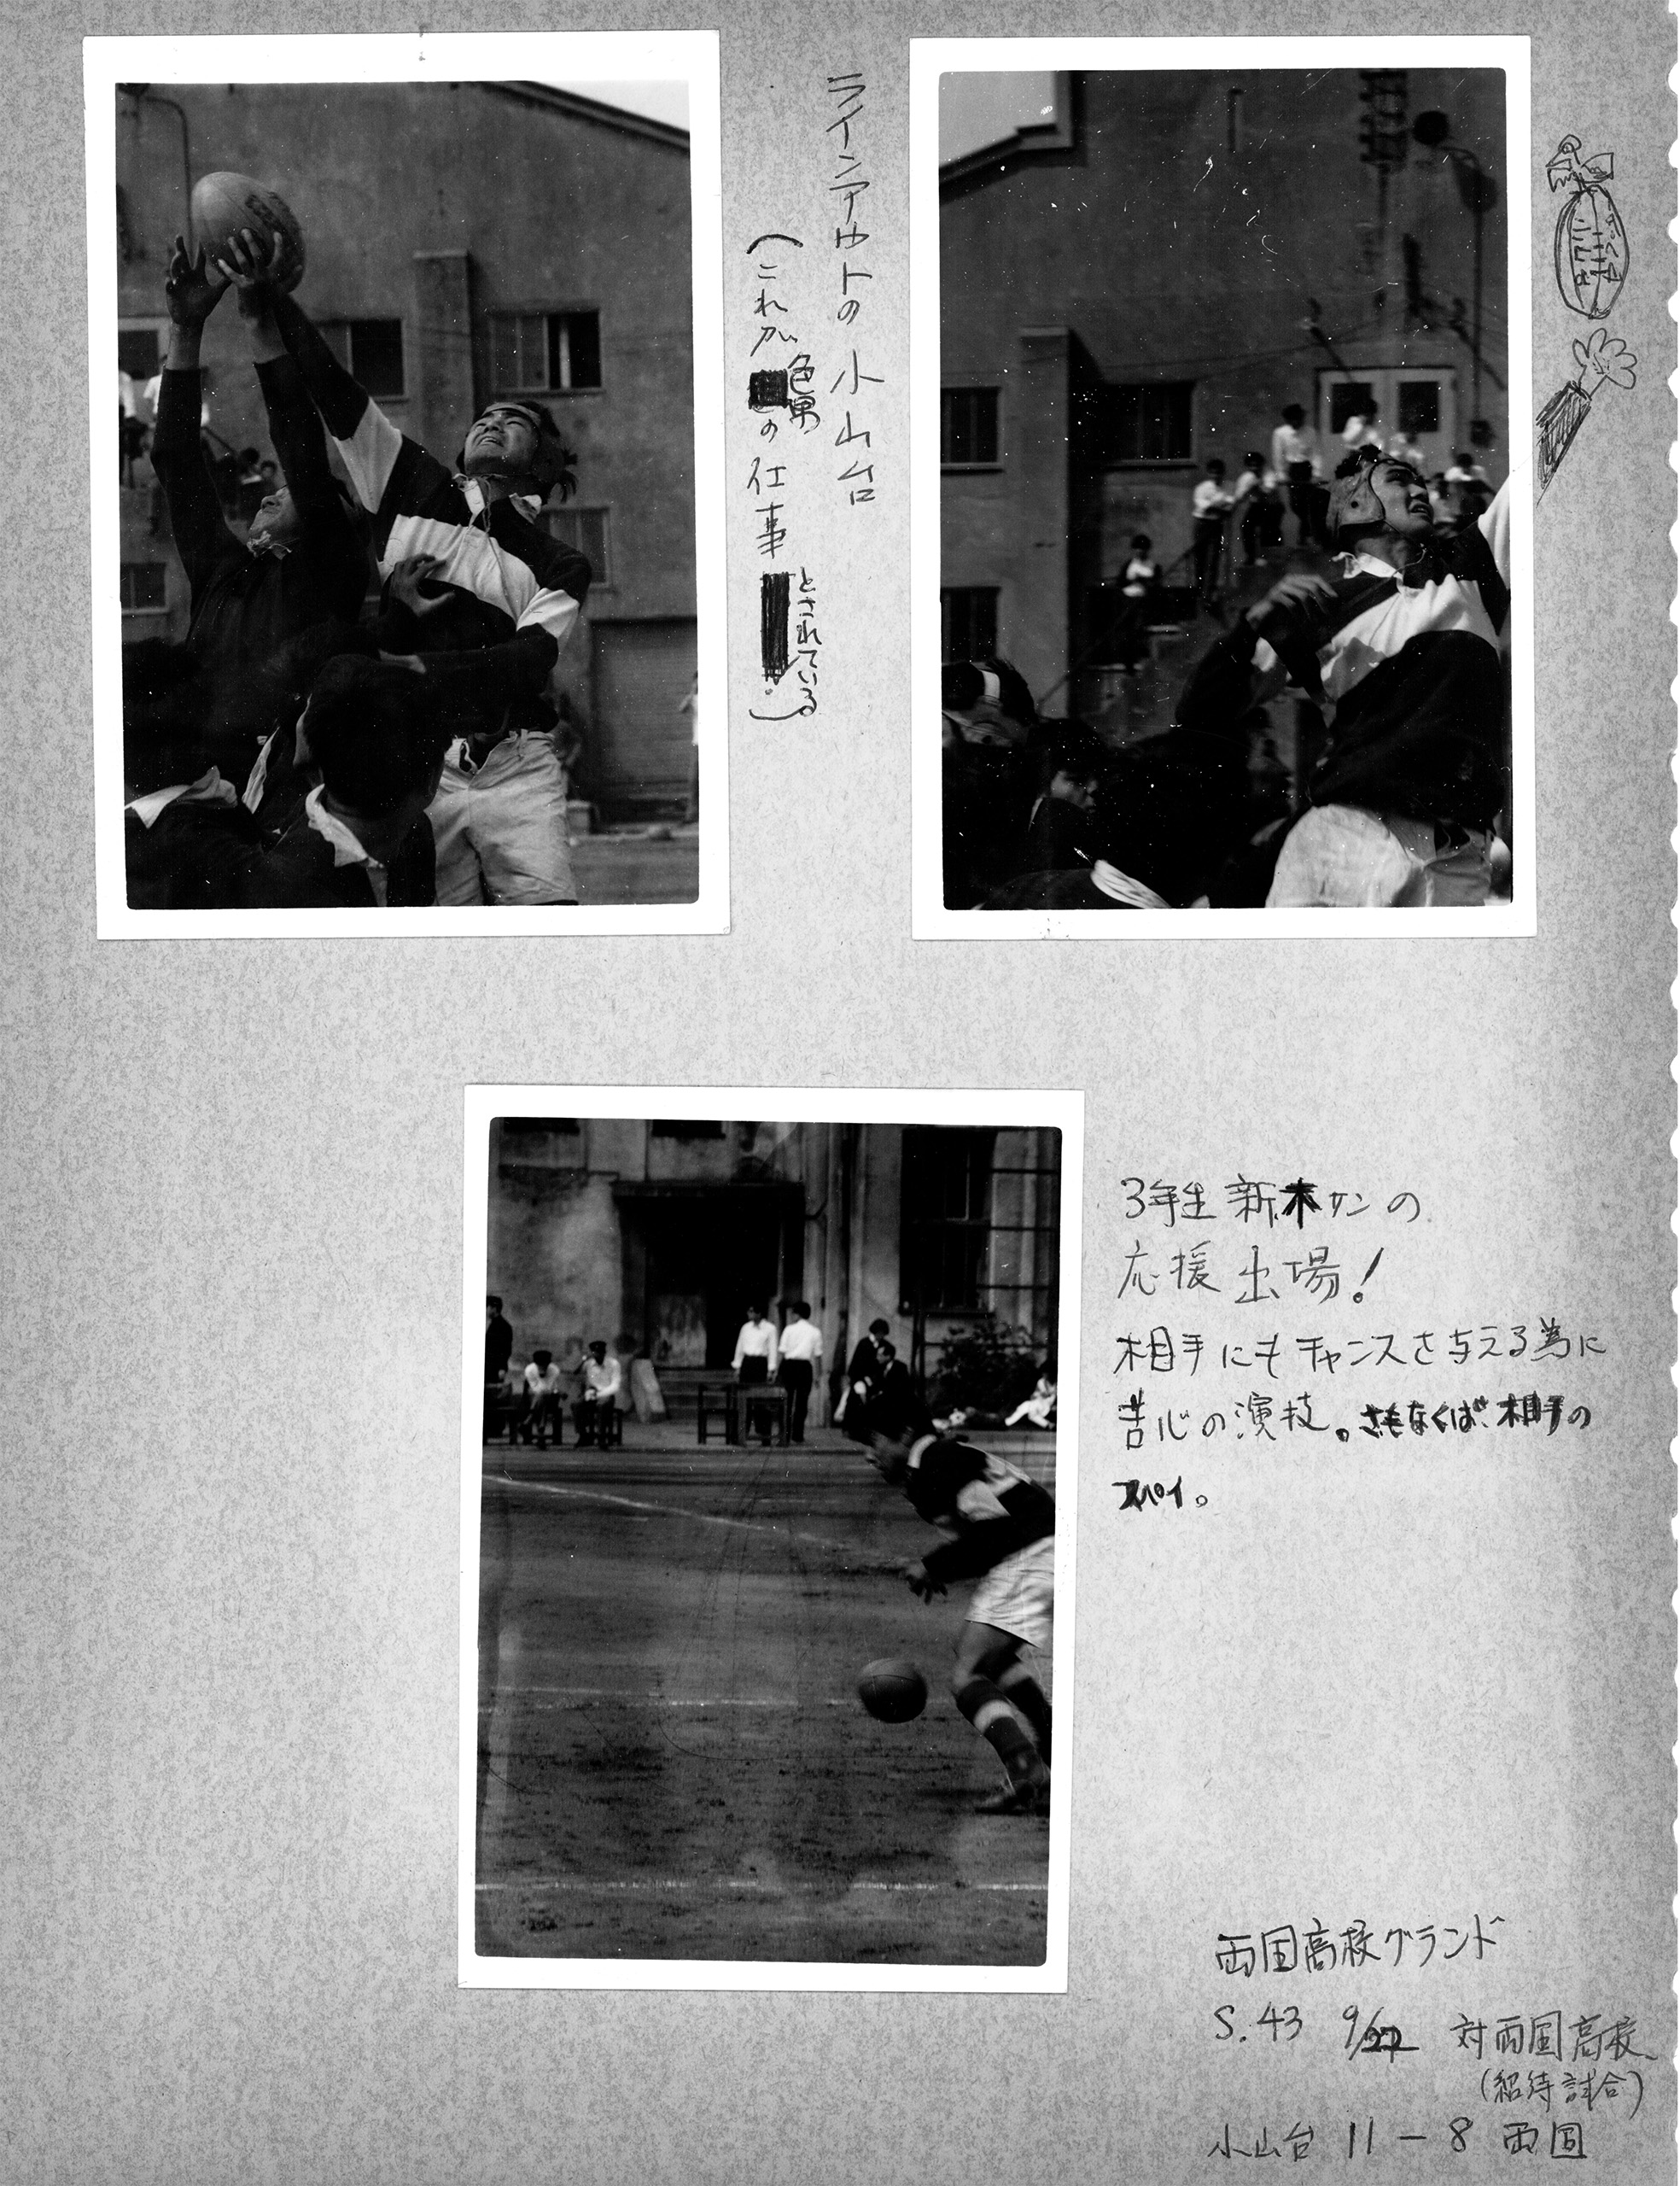 ラインアウトの小山台
(これが色男の仕事とされている。)
3年生新木サンの
応援出場!
相手にもチャンスを与える為に
苦心の演技。さもなくば相手の
スパイ。
両国高校グランド
S.43 9/22 対両国高校
(招待試合)
小山台 11-8 両国